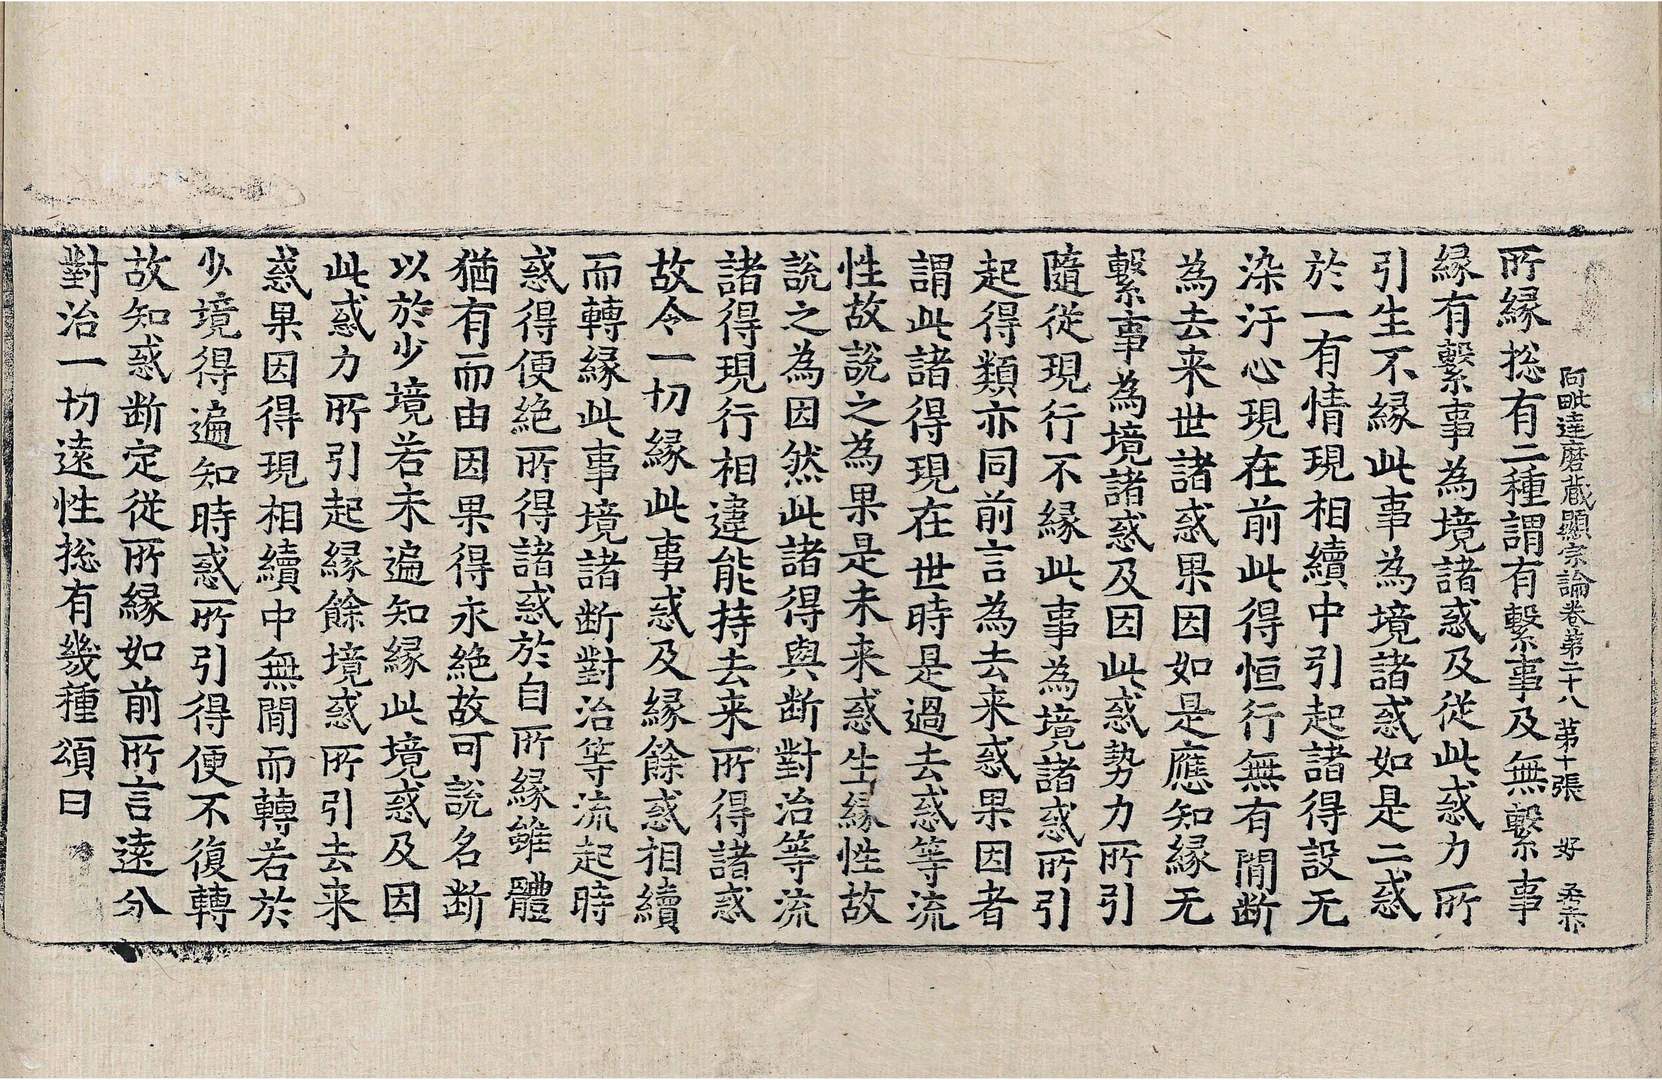 阿毗達磨蔵顯宗論卷第二十八 第十張 好
所縁捴有二種謂有繫事及無繫事
縁有繫事為境諸惑及從此惑力所
引生不縁此事為境諸惑如是二惑
於一有情現相續中引起諸得設无
染汙心現在前此得恒行無有間断
為去来世諸惑果因如是應知縁无
繫事為境諸惑及因此惑勢力所引
隨從現行不縁此事為境諸惑所引
起得類亦同前言為去来惑果因者
謂此諸得現在世時是過去惑等流
性故說之為果是未来惑生縁性故
說之為因然此諸得與断對治等流
諸得現行相違能持去来所得諸惑
故令一切縁此事惑及縁餘惑相續
而轉縁此事境諸断對治等流起時
惑得便絶所得諸惑於自所縁雖體
猶有而由因果得永絶故可說名断
以於少境若未遍知縁此境惑及因
此惑力所引起縁餘境惑所引去来
惑果因得現相續中無間而轉若於
少境得遍知時惑所引得便不復轉
故知惑断定從所縁如前所言遠分
對治一切遠性捴有幾種頌曰